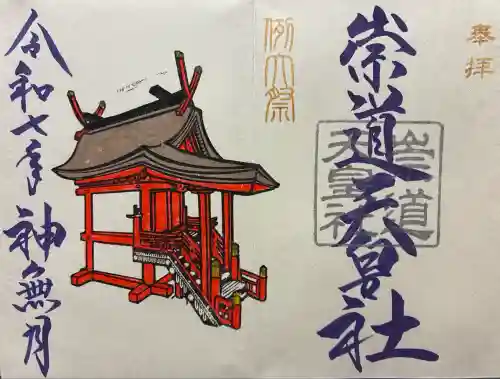 奉拝
崇道天皇社
崇道天皇社
例大祭
令和七年
神無月